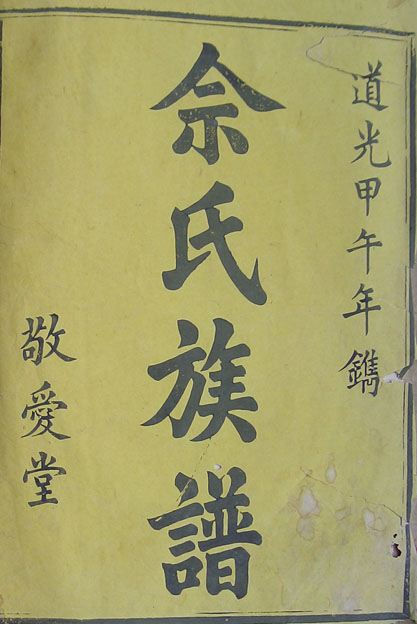 道光甲午年鐫
佘氏族譜
敬愛堂